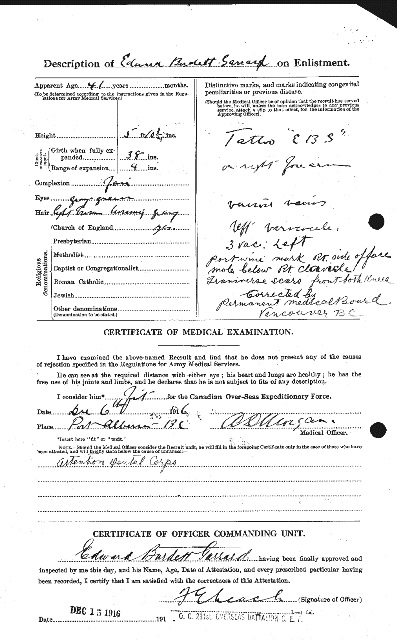 Description of Edward Burdett Garrard on Enlistment.
Apparent Age 41 years months.
(To be determined according to the instructions given in the Regulations for Army Medical Services.)
Height 5 ins.
Girth when fully expanded 38 ins.
Range of expansion 4 ins.
Complexion
Eyes
Hair light brown turning gray
Religious denominations.
Church of England yes
Presbyterian
Methodist
Baptist or Congregationalist
Roman Catholic
Jewish
Other denominations
(Denomination to be stated.)
Distinctive marks, and marks indicating congenital peculiarities or previous disease.
(Should the Medical Officer be of opinion that the recruit has served before, he will, unless the man acknowledges to any previous service, attach a slip to that effect, for the information of the Approving Officer).
Tattoo "E B S"
on right forearm
varicose veins
left varicocele.
3 vac. left
Portwine mark Rt. side of face
mole below Rt clavicle
Transverse scars front both knees
Corrected by
Permanent medical Board
Vancouver BC
CERTIFICATE OF MEDICAL EXAMINATION.
I have examined the above-named Recruit and find that he does not present any of the causes
of rejection specified in the Regulations for Army Medical Services.
He can see at the required distance with either eye; his heart and lungs are healthy; he has the
free use of his joints and limbs, and he declares that he is not subject to fits of any description.
I consider him* Fit for the Canadian Over-Seas Expeditionary Force.
Date Dec 6th 1916
Place Port Alberni BC
Medical Officer.
*Insert here "fit" or "unfit."
NOTE.—Should the Medical Officer consider the Recruit unfit, he will fill in the foregoing Certificate only in the case of those who have
been attested, and will briefly state below the cause of unfitness:—
attention Dental Corps
CERTIFICATE OF OFFICER COMMANDING UNIT.
Edward Burdett Garrard having been finally approved and
inspected by me this day, and his Name, Age, Date of Attestation, and every prescribed particular having
been recorded, I certify that I am satisfied with the correctness of this Attestation.
(Signature of Officer)
Date DEC 15 1916 191
O. C. OVERSEAS BATTALION C.E.F.